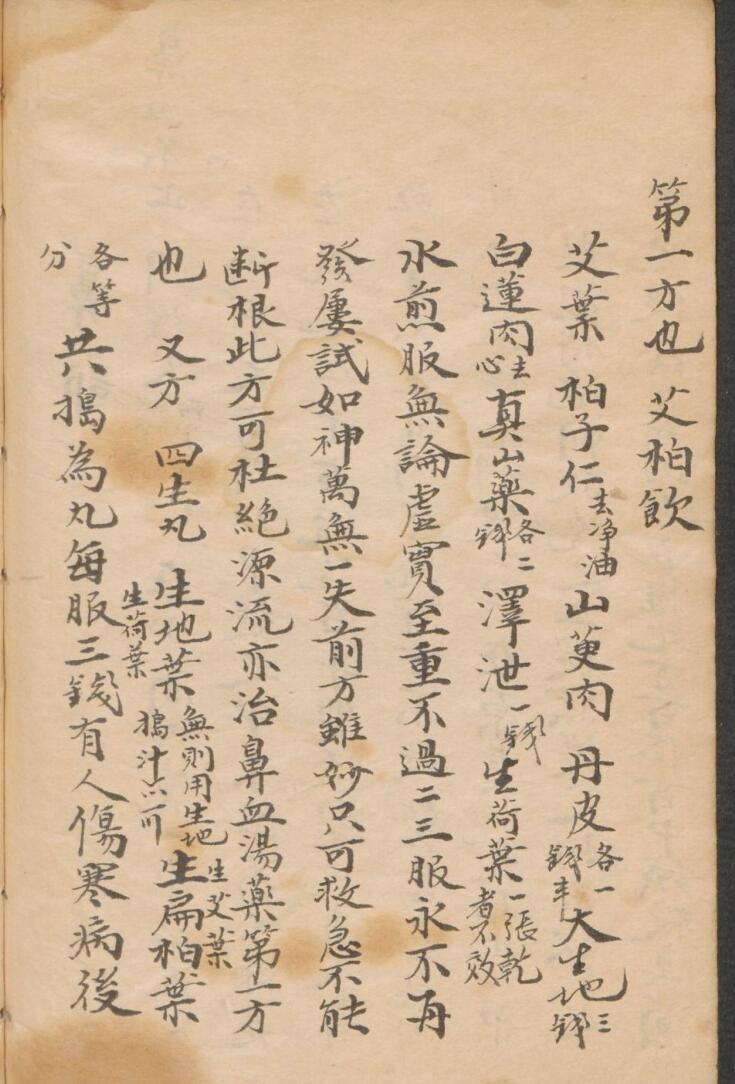 第一方也 艾柏飲
艾葉 柏子仁去净油山萸肉 丹皮各一錢半大生地三錢
白蓮肉去心真山藥各二錢澤泄一錢生荷葉一張乾者不效
水煎服無論虛實至重不過二三服永不再
發屢試如神萬無一失前方雖妙只可救急不能
断根此方可杜絕源流亦治鼻血湯藥第一方
也 又方 四生丸 生地葉無則用生地搗汁亦可生荷葉生扁柏葉生艾葉
各等分共搗為丸每服三錢有人傷寒病後